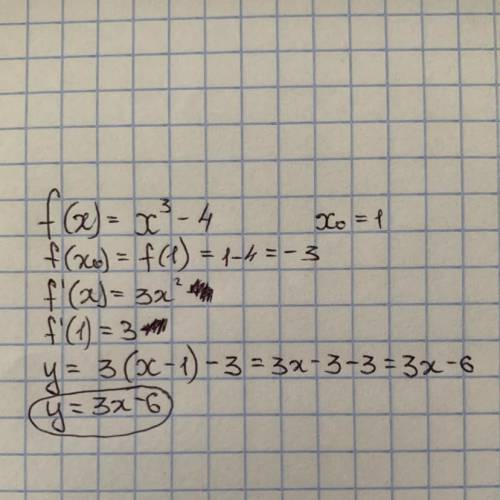 f(x) = x³ - 4 x₀ = 1
f(x₀) = f(1) = 1-4 = -3
f'(x) = 3x²
f'(1) = 3
y = 3(x-1) - 3 = 3x - 3 - 3 = 3x - 6
y = 3x - 6